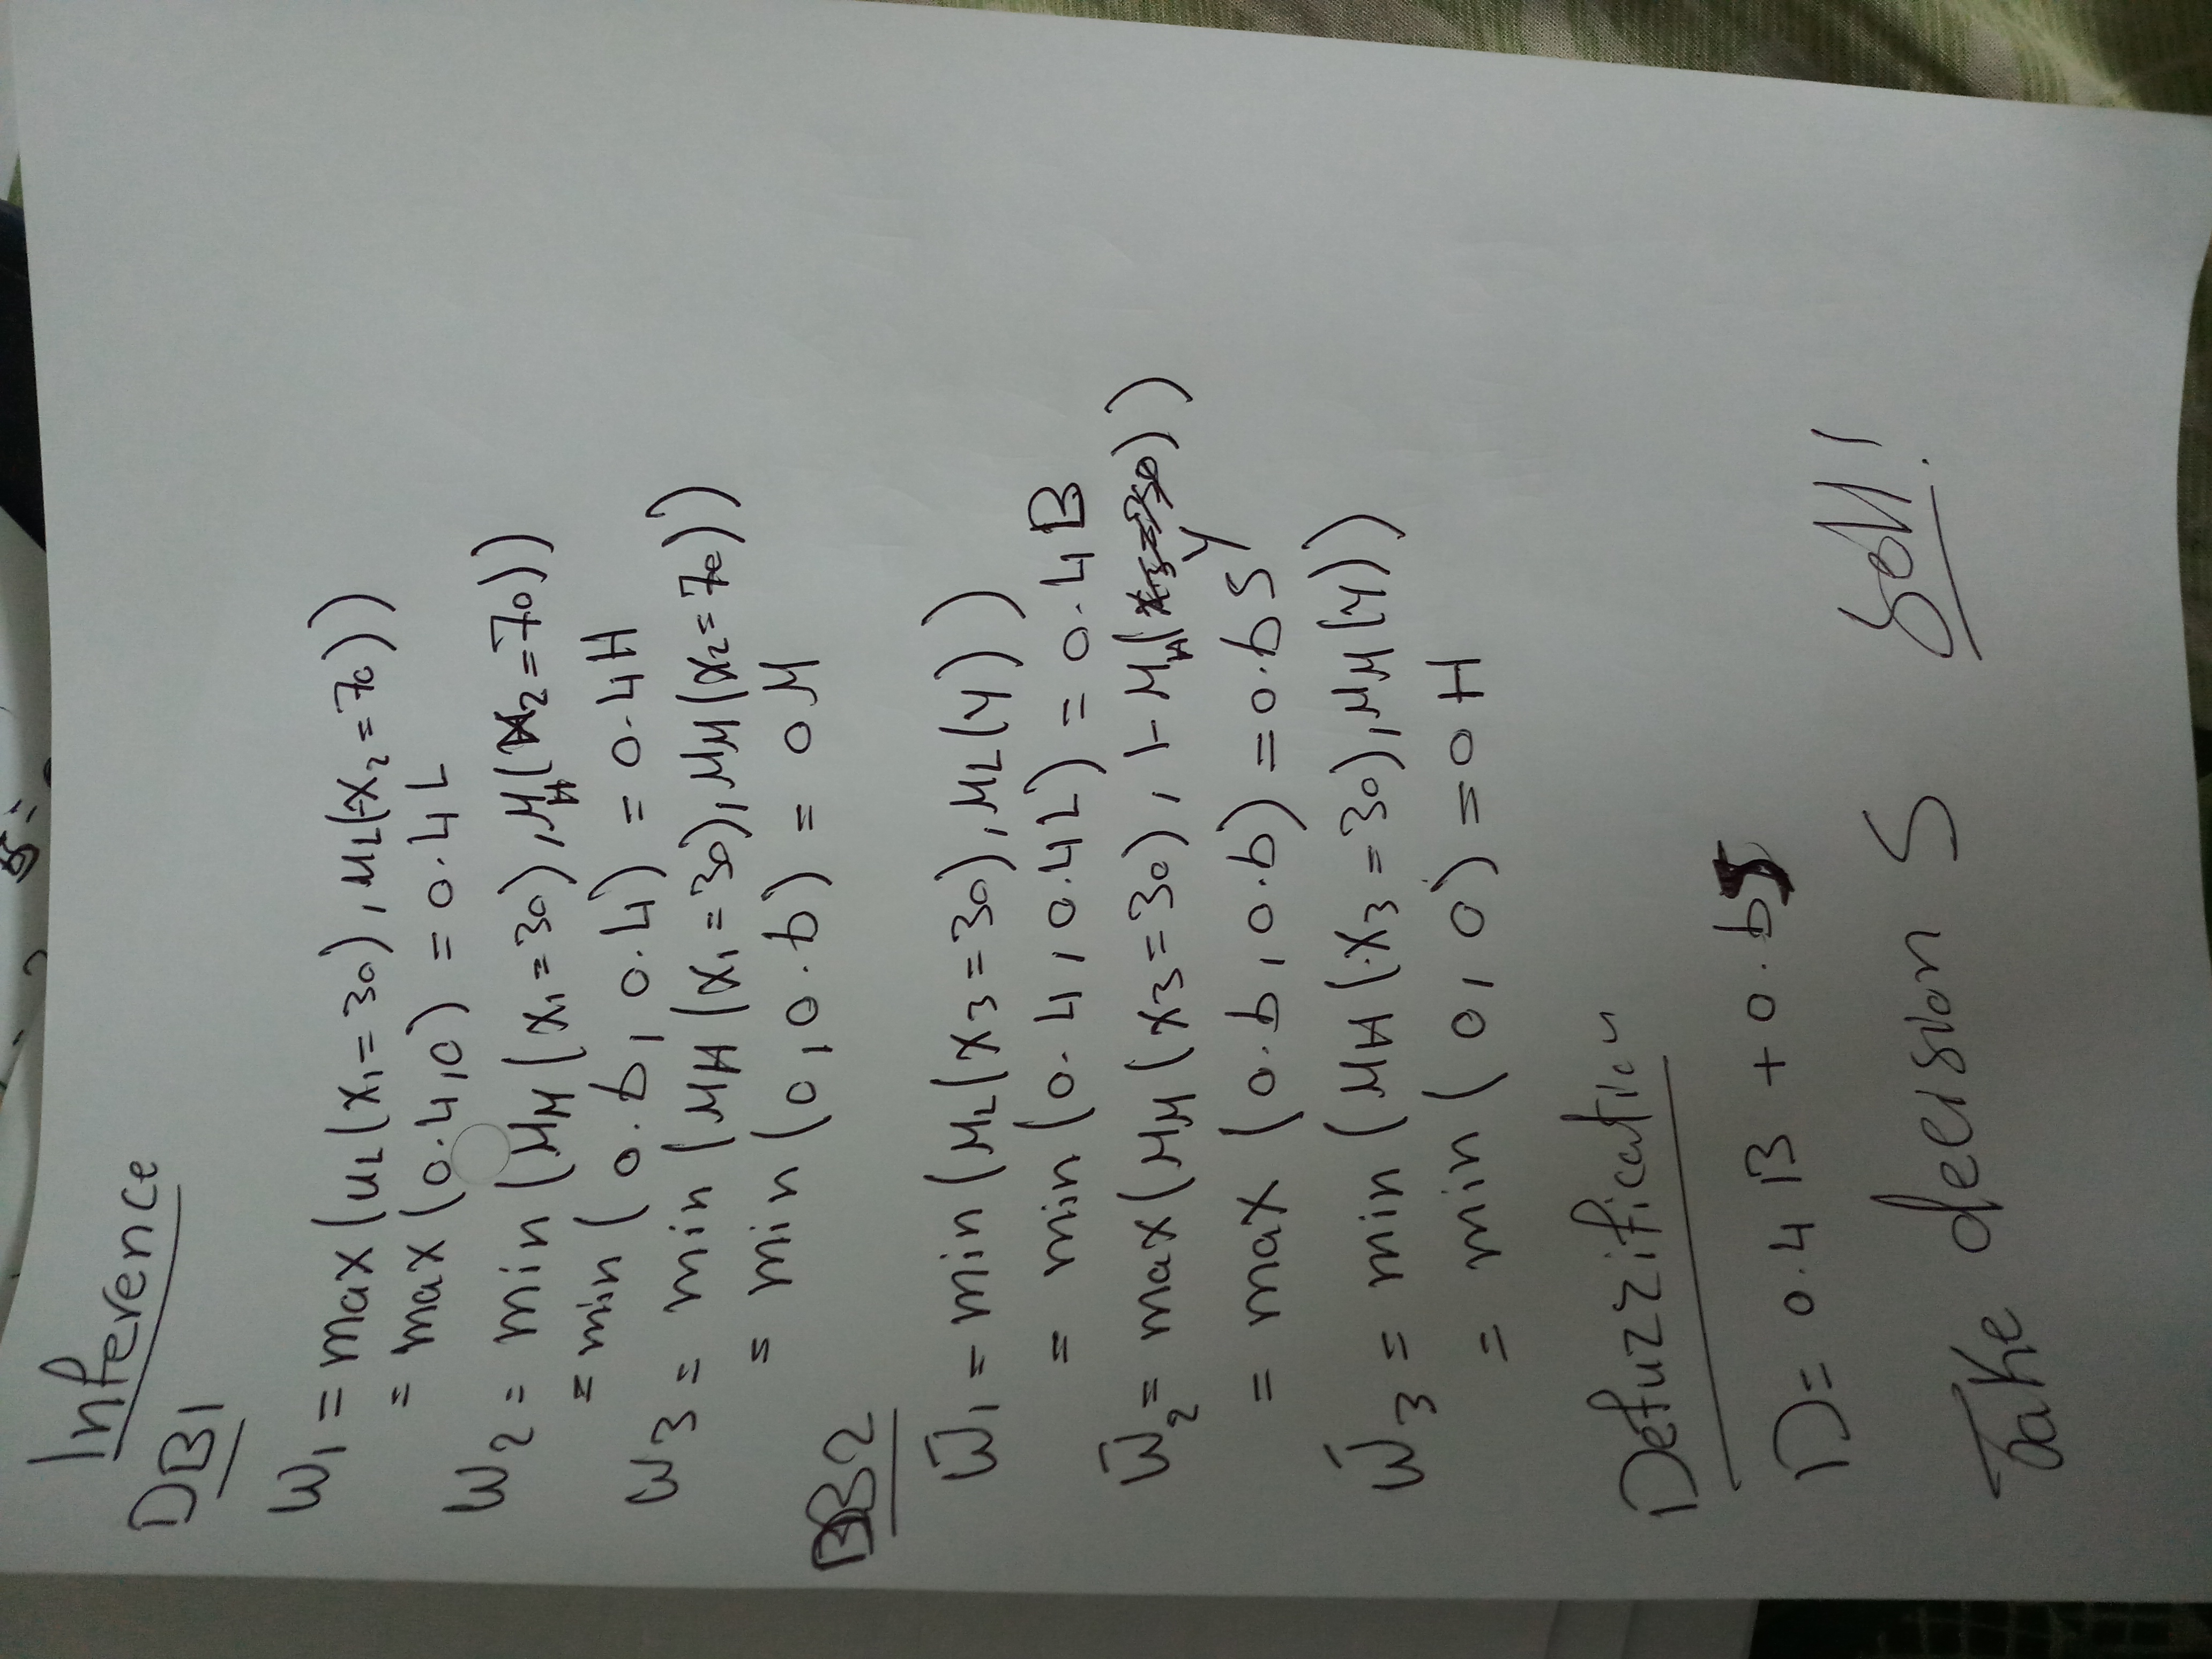 Inference
DB1
W₁ = max(uL(x₁=30), μL(x₂=70))
= max(0.4,0) = 0.4L
W₂ = min(μM(x₁=30), μH(x₂=70))
= min(0.6, 0.4) = 0.4H
W₃ = min(μH(x₁=30), μM(x₂=70))
= min(0,0.6) = 0M
DB2
W̄₁ = min(μL(x₃=30), μL(y))
= min(0.4, 0.4L) = 0.4B
W̄₂ = max(μM(x₃=30), 1-μH(y))
= max(0.6, 0.6) = 0.6S
W̄₃ = min(μH(x₃=30), μM(y))
= min(0, 0) = 0H
Defuzzification
D = 0.4B + 0.6S
Take decision S Sell!